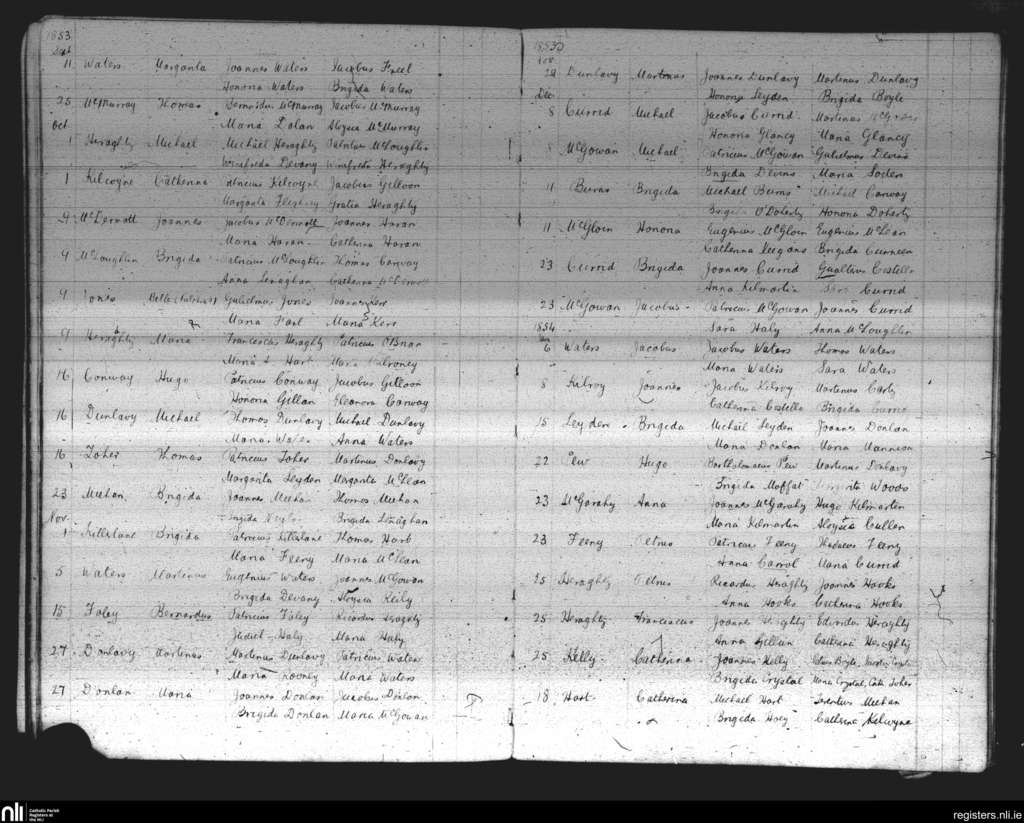 1853
Sept
11 Waters Margarita Joannes Waters Jacobus Feel
Honora Waters Brigida Waters
25 McMurray Thomas Bernardus McMurray Jacobus McMurray
Maria Dolan Aloysia McMurray
Oct
1 Heraghty Michael Michael Heraghty Patritius McLoughlin
Winifreda Devany Winifreda Heraghty
1 Kilcoyne Catherina Patricius Kilcoyne Jacobus Gilloon
Margarita Gratia Heraghty
9 McDermott Joannes Jacobus McDermott Joannes Haran
Maria Haran Catherina Haran
9 McLoughlin Brigida Patricius McLoughlin Thomas Conway
Anna Lenaghan Catherina McDermott
9 Jones Gulielmus Jones Joannes Kerr
Maria Maria Kerr
9 Heraghty Maria Franciscus Heraghty Patricius OBrian
Maria Hart Maria
16 Conway Hugo Patricius Conway Jacobus Gilloon
Honora Gillan Eleanora Conway
16 Dunlavy Michael Thomas Dunlavy Michael Dunlavy
Maria Waters Anna Waters
16 Toher Thomas Patricius Toher Martinus Donlavy
Margarita Leydon Margarita McLean
23 Meehan Brigida Joannes Meehan Thomas Meehan
Brigida Brigida Lenaghan
Nov
1 Brigida Patricius Thomas Hart
Maria Feeny Maria McLean
5 Waters Martinus Eugenius Waters Joannes McGowan
Brigida Devany Aloysia Reily
15 Foley Bernardus Patricius Foley Ricardus Heraghty
Judith Haly Maria Haly
27 Donlavy Martinus Martinus Dunlavy Patricius Waters
Maria Rooney Maria Waters
27 Donlan Maria Joannes Donlan Jacobus Donlan
Brigida Donlan Maria McGowan
1853
Nov
29 Dunlavy Martinus Joannes Dunlavy Martinus Dunlavy
Honora Leyden Brigida Boyle
Dec
8 Currid Michael Jacobus Currid Martinus
Honora Glancy Maria Glancy
8 McGowan Michael Patricius McGowan Gulielmus Devins
Brigida Devins Maria Soden
11 Burns Brigida Michael Burns Michael Conway
Brigida O'Doherty Honora Doherty
11 McGloin Honora Eugenius McGloin Eugenius McLean
Catherina Keegans Brigida Curneen
23 Currid Brigida Joannes Currid Gualterus Costello
Anna Kilmartin Currid
23 McGowan Jacobus Patricius McGowan Joannes Currid
Sara Haly Anna McLoughlin
1854
Jan
6 Waters Jacobus Jacobus Waters Thomas Waters
Maria Waters Sara Waters
8 Kilroy Joannes Jacobus Kilroy Martinus
Catherina Costello Brigida Currid
15 Leyden Brigida Michael Leyden Joannes Donlan
Maria Donlan Maria Mannion
22 Pew Hugo Bartholomaeus Pew Martinus Donlavy
Brigida Moffat Margarita Woods
23 McGarahy Anna Joannes McGarahy Hugo Kilmartin
Maria Kilmartin Aloysia Cullen
23 Feeny Petrus Patricius Feeny Thadaeus Feeny
Anna Carrol Maria Currid
25 Heraghty Petrus Ricardus Heraghty Joannes Hooks
Anna Hooks Catherina Hooks
25 Heraghty Franciscus Joannes Heraghty Edwardus Heraghty
Anna Gillian Catherina Heraghty
25 Kelly Catherina Joannes Kelly
Brigida Crystal Maria Crystal, Cath Toher
18 Hart Catherina Michael Hart Terentius Meehan
Brigida Hoey Catherina Kilcoyne
nli Catholic Parish
Registers at
the NLI
registers.nli.ie